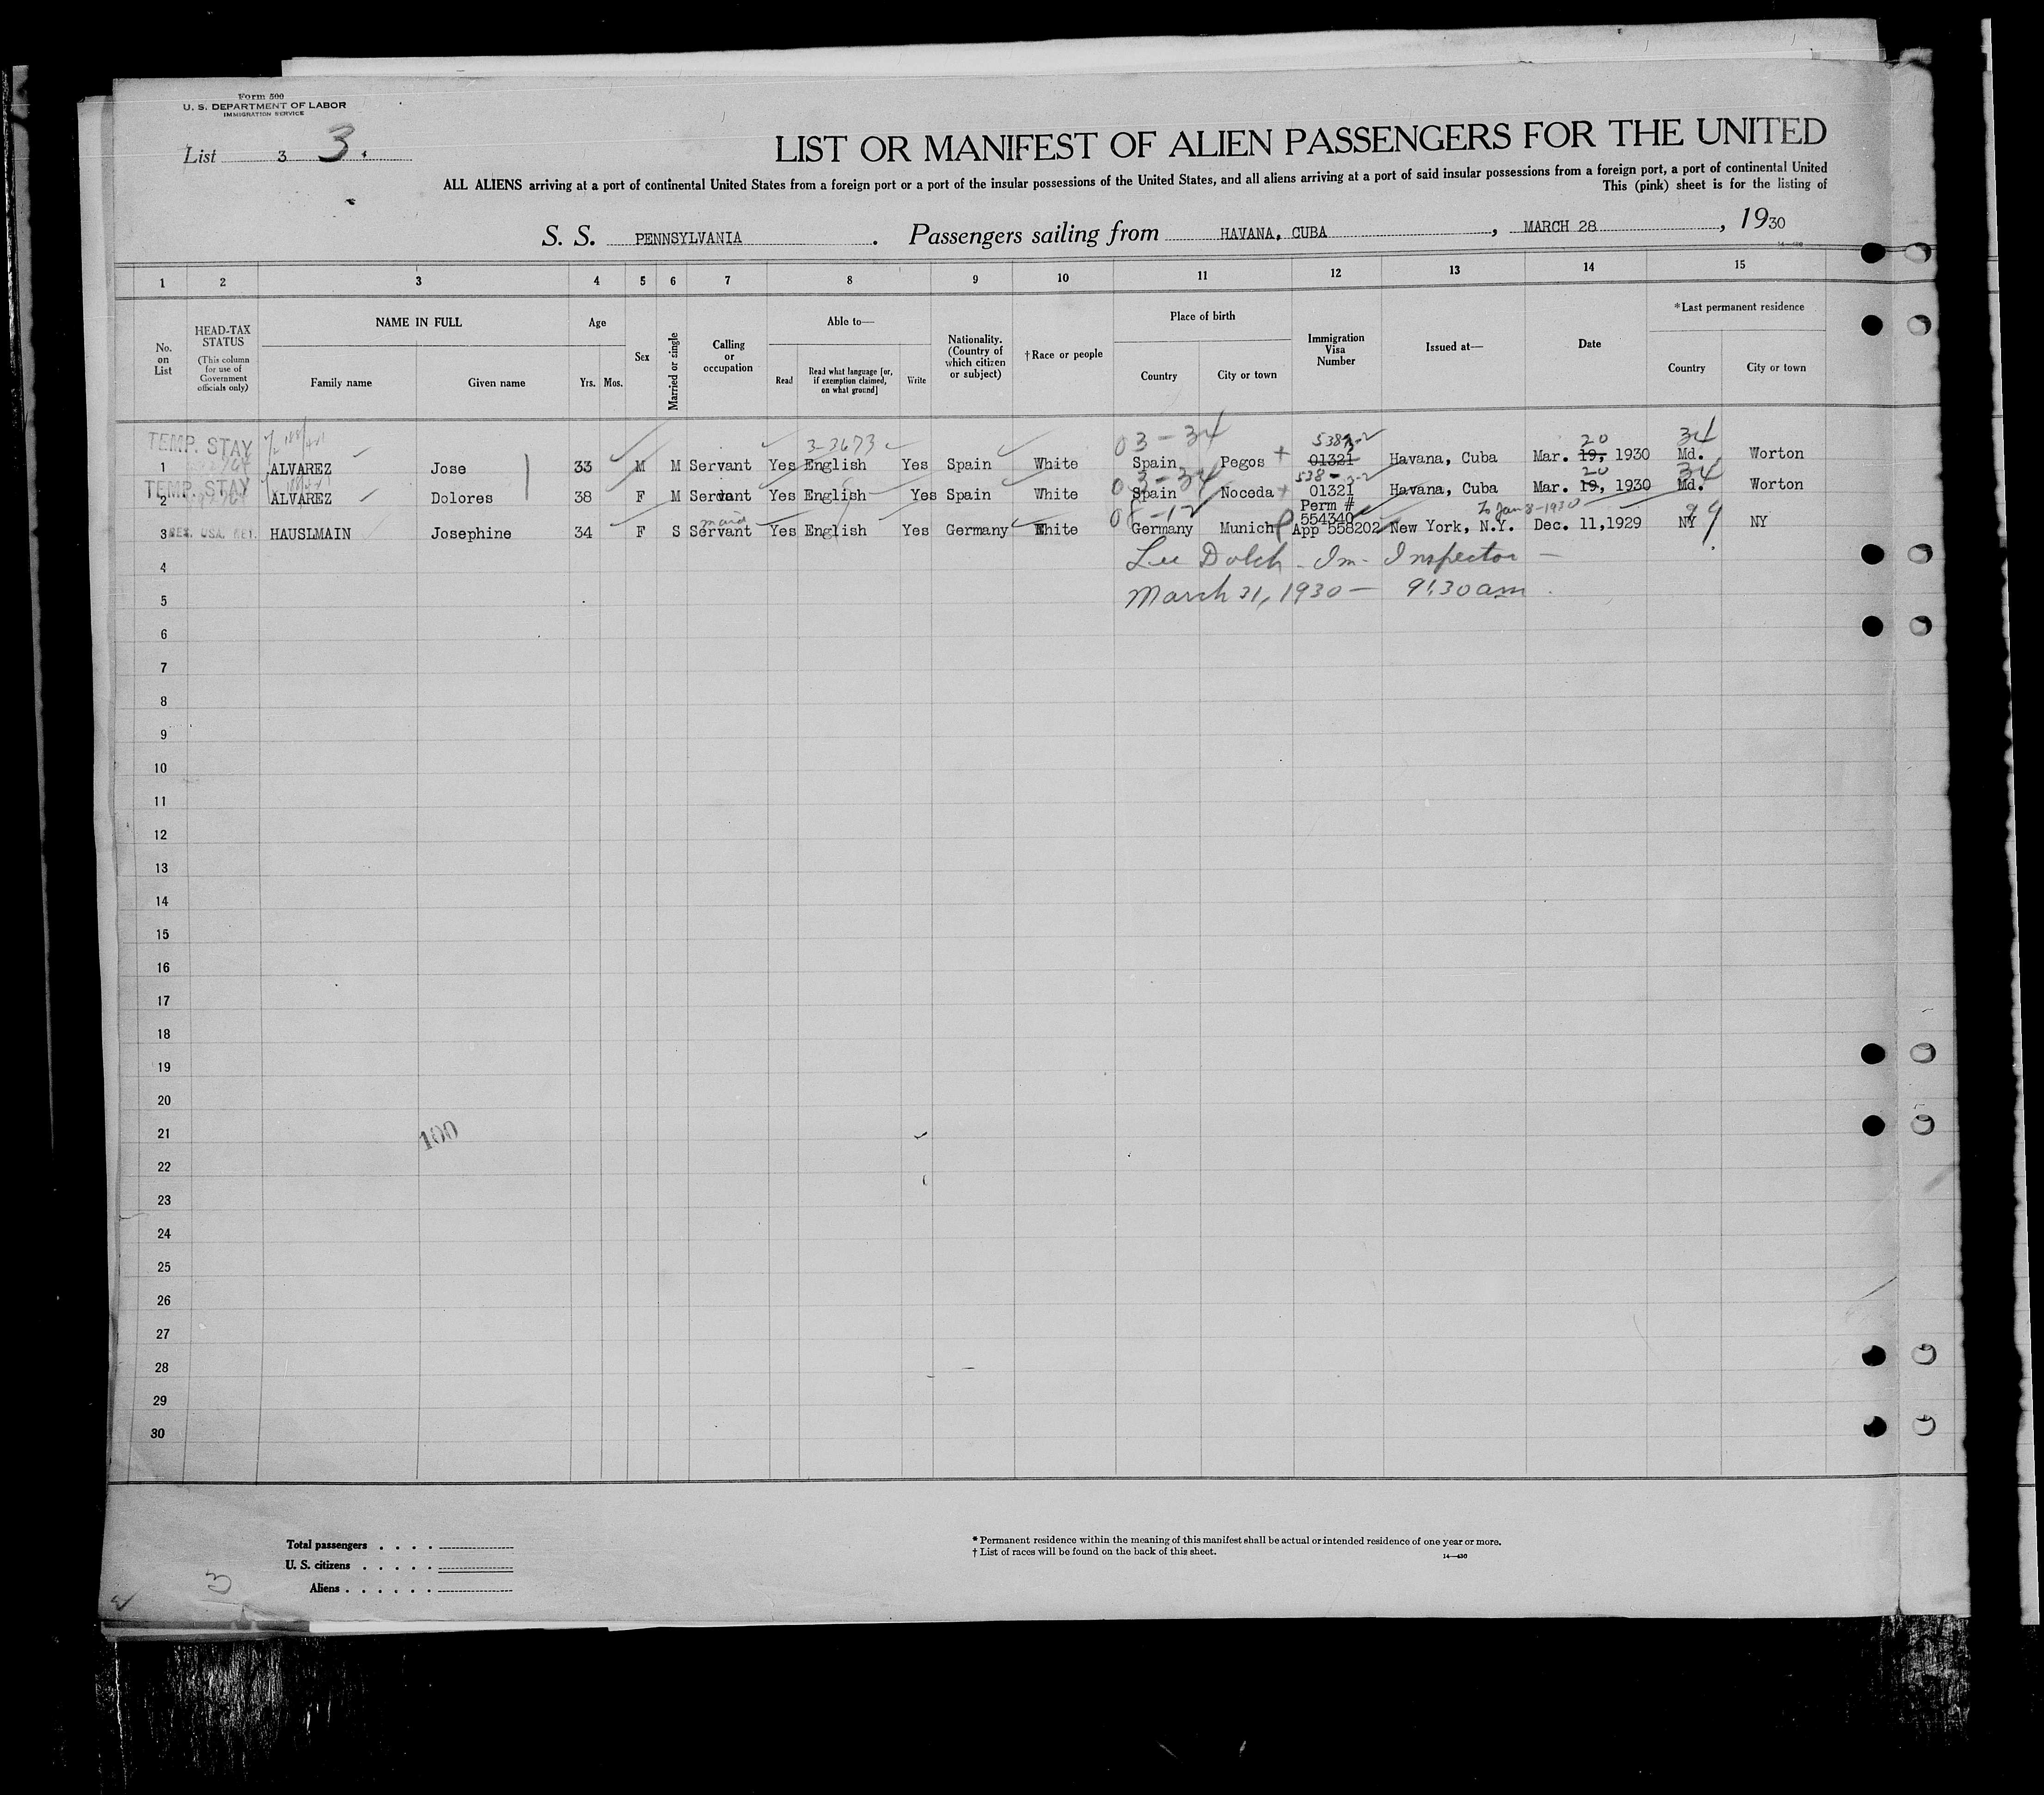 Form 500
U. S. DEPARTMENT OF LABOR
IMMIGRATION SERVICE
List 3 3.
LIST OR MANIFEST OF ALIEN PASSENGERS FOR THE UNITED
ALL ALIENS arriving at a port of continental United States from a foreign port or a port of the insular possessions of the United States, and all aliens arriving at a port of said insular possessions from a foreign port, a port of continental United
This (pink) sheet is for the listing of
S. S. PENNSYLVANIA. Passengers sailing from HAVANA, CUBA, MARCH 28, 1930
14—430
1 2 3 4 5 6 7 8 9 10 11 12 13 14 15
No. on List
HEAD-TAX STATUS
(This column for use of Government officials only)
NAME IN FULL
Family name Given name
Age
Yrs. Mos.
Sex
Married or single
Calling or occupation
Able to—
Read
Read what language [or, if exemption claimed, on what ground]
Write
Nationality. (Country of which citizen or subject)
†Race or people
Place of birth
Country City or town
Immigration Visa Number
Issued at—
Date
*Last permanent residence
Country City or town
TEMP. STAY 3-3673 03-34 20 34
1 ALVAREZ Jose 33 M M Servant Yes English Yes Spain White Spain Pegos 01321 Havana, Cuba Mar. 19, 1930 Md. Worton
TEMP. STAY 03-34 538- 20 34
2 ALVAREZ Dolores 38 F M Servant Yes English Yes Spain White Spain Noceda 01321 Havana, Cuba Mar. 19, 1930 Md. Worton
Perm #
maid 554340 To Jan 8-1930
3 HAUSLMAIN Josephine 34 F S Servant Yes English Yes Germany White Germany Munich App 558202 New York, N.Y. Dec. 11,1929 NY NY
4 Lee Dolch - Im. Inspector —
5 March 31, 1930 — 9:30 am.
6
7
8
9
10
11
12
13
14
15
16
17
18
19
20
21 100
22
23
24
25
26
27
28
29
30
Total passengers . . . .
U. S. citizens . . . . .
Aliens . . . . . .
* Permanent residence within the meaning of this manifest shall be actual or intended residence of one year or more.
† List of races will be found on the back of this sheet.
14—430
3